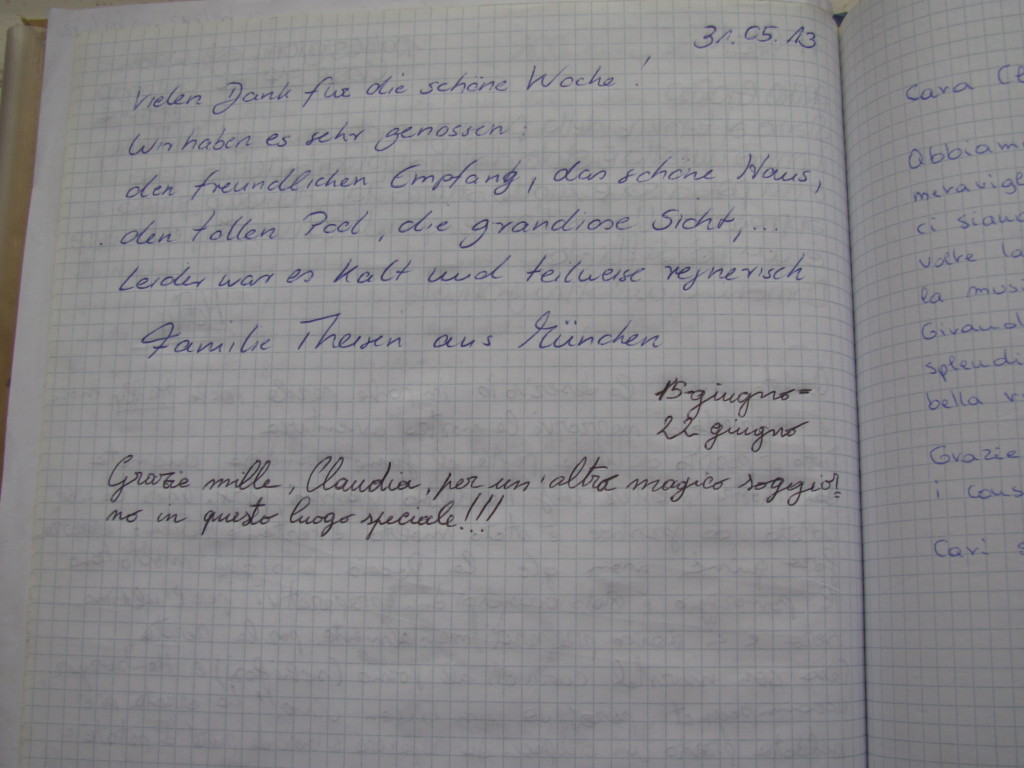 31.05.13
Vielen Dank für die schöne Woche!
Wir haben es sehr genossen:
den freundlichen Empfang, das schöne Haus,
den tollen Pool, die grandiose Sicht,...
Leider war es kalt und teilweise regnerisch
Familie Theisen aus München
15 giugno=
22 giugno
Grazie mille, Claudia, per un'altro magico soggior=
no in questo luogo speciale...!!!
Cara
Abbiam
meravigl
ci sian
la musi
Girand
splendi
bella v
Grazie
i cons
Cari